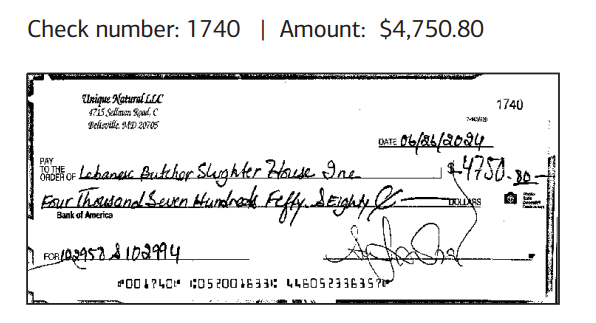 Check number: 1740 | Amount: $4,750.80
Unique Natural LLC
4715 Sellman Road, C
Beltsville, MD 20705
1740
DATE 06/26/2024
PAY
TO THE
ORDER OF Lebanese Butcher Slughter House Inc
$4750.80
Four Thousand Seven Hundreds Feffy & Eighty
DOLLARS
Bank of America
FOR 102957 & 102994